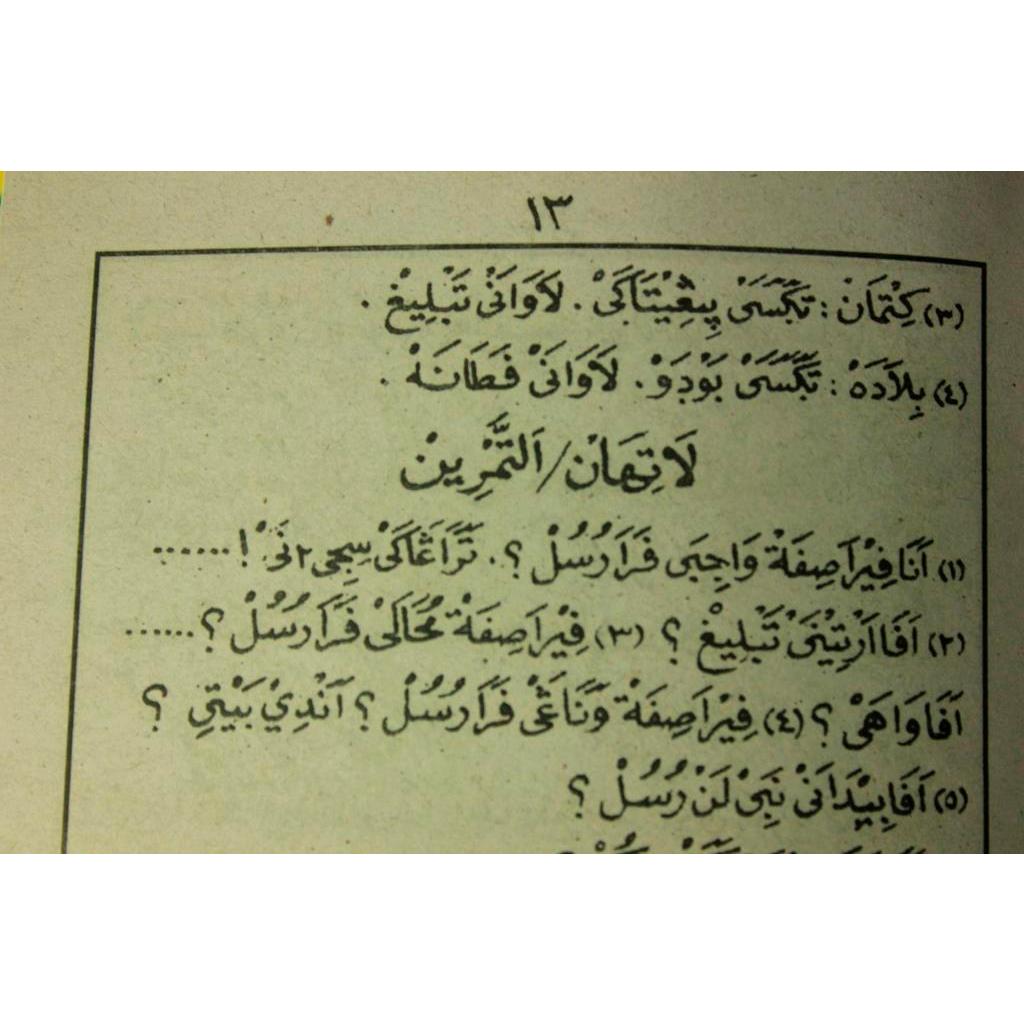 ١٣
(٣) كِتْمَانْ : تَݢَٓسَىْ پِڠِيْتَاكَىْ . لَاوَانَىْ تَبْلِيْغْ .
(٤) بِلَادَةْ : تَݢَٓسَىْ بَوْدَوْ . لَاوَانَىْ فَطَانَةْ .
لَاتِهَانْ/اَلتَّمْرِيْنْ
(١) اَنَا فِيْرَا صِفَةْ وَاجِبَى فَرَا رُسُلْ ؟. تَرَاڠَاكَىْ سِجِى٢ نَىْ !.......
(٢) اَفَا اَرْتِيْنَىْ تَبْلِيْغْ ؟ (٣) فِيْرَا صِفَةْ مُحَالَىْ فَرَا رُسُلْ ؟......
اَفَا وَاهَىْ ؟ (٤) فِيْرَا صِفَةْ وَنَاڠَىْ فَرَا رُسُلْ ؟ اَنْدِيْ بَيْتَيْ ؟
(٥) اَفَا بِيْدَانَىْ نَبِىْ لَنْ رُسُلْ ؟